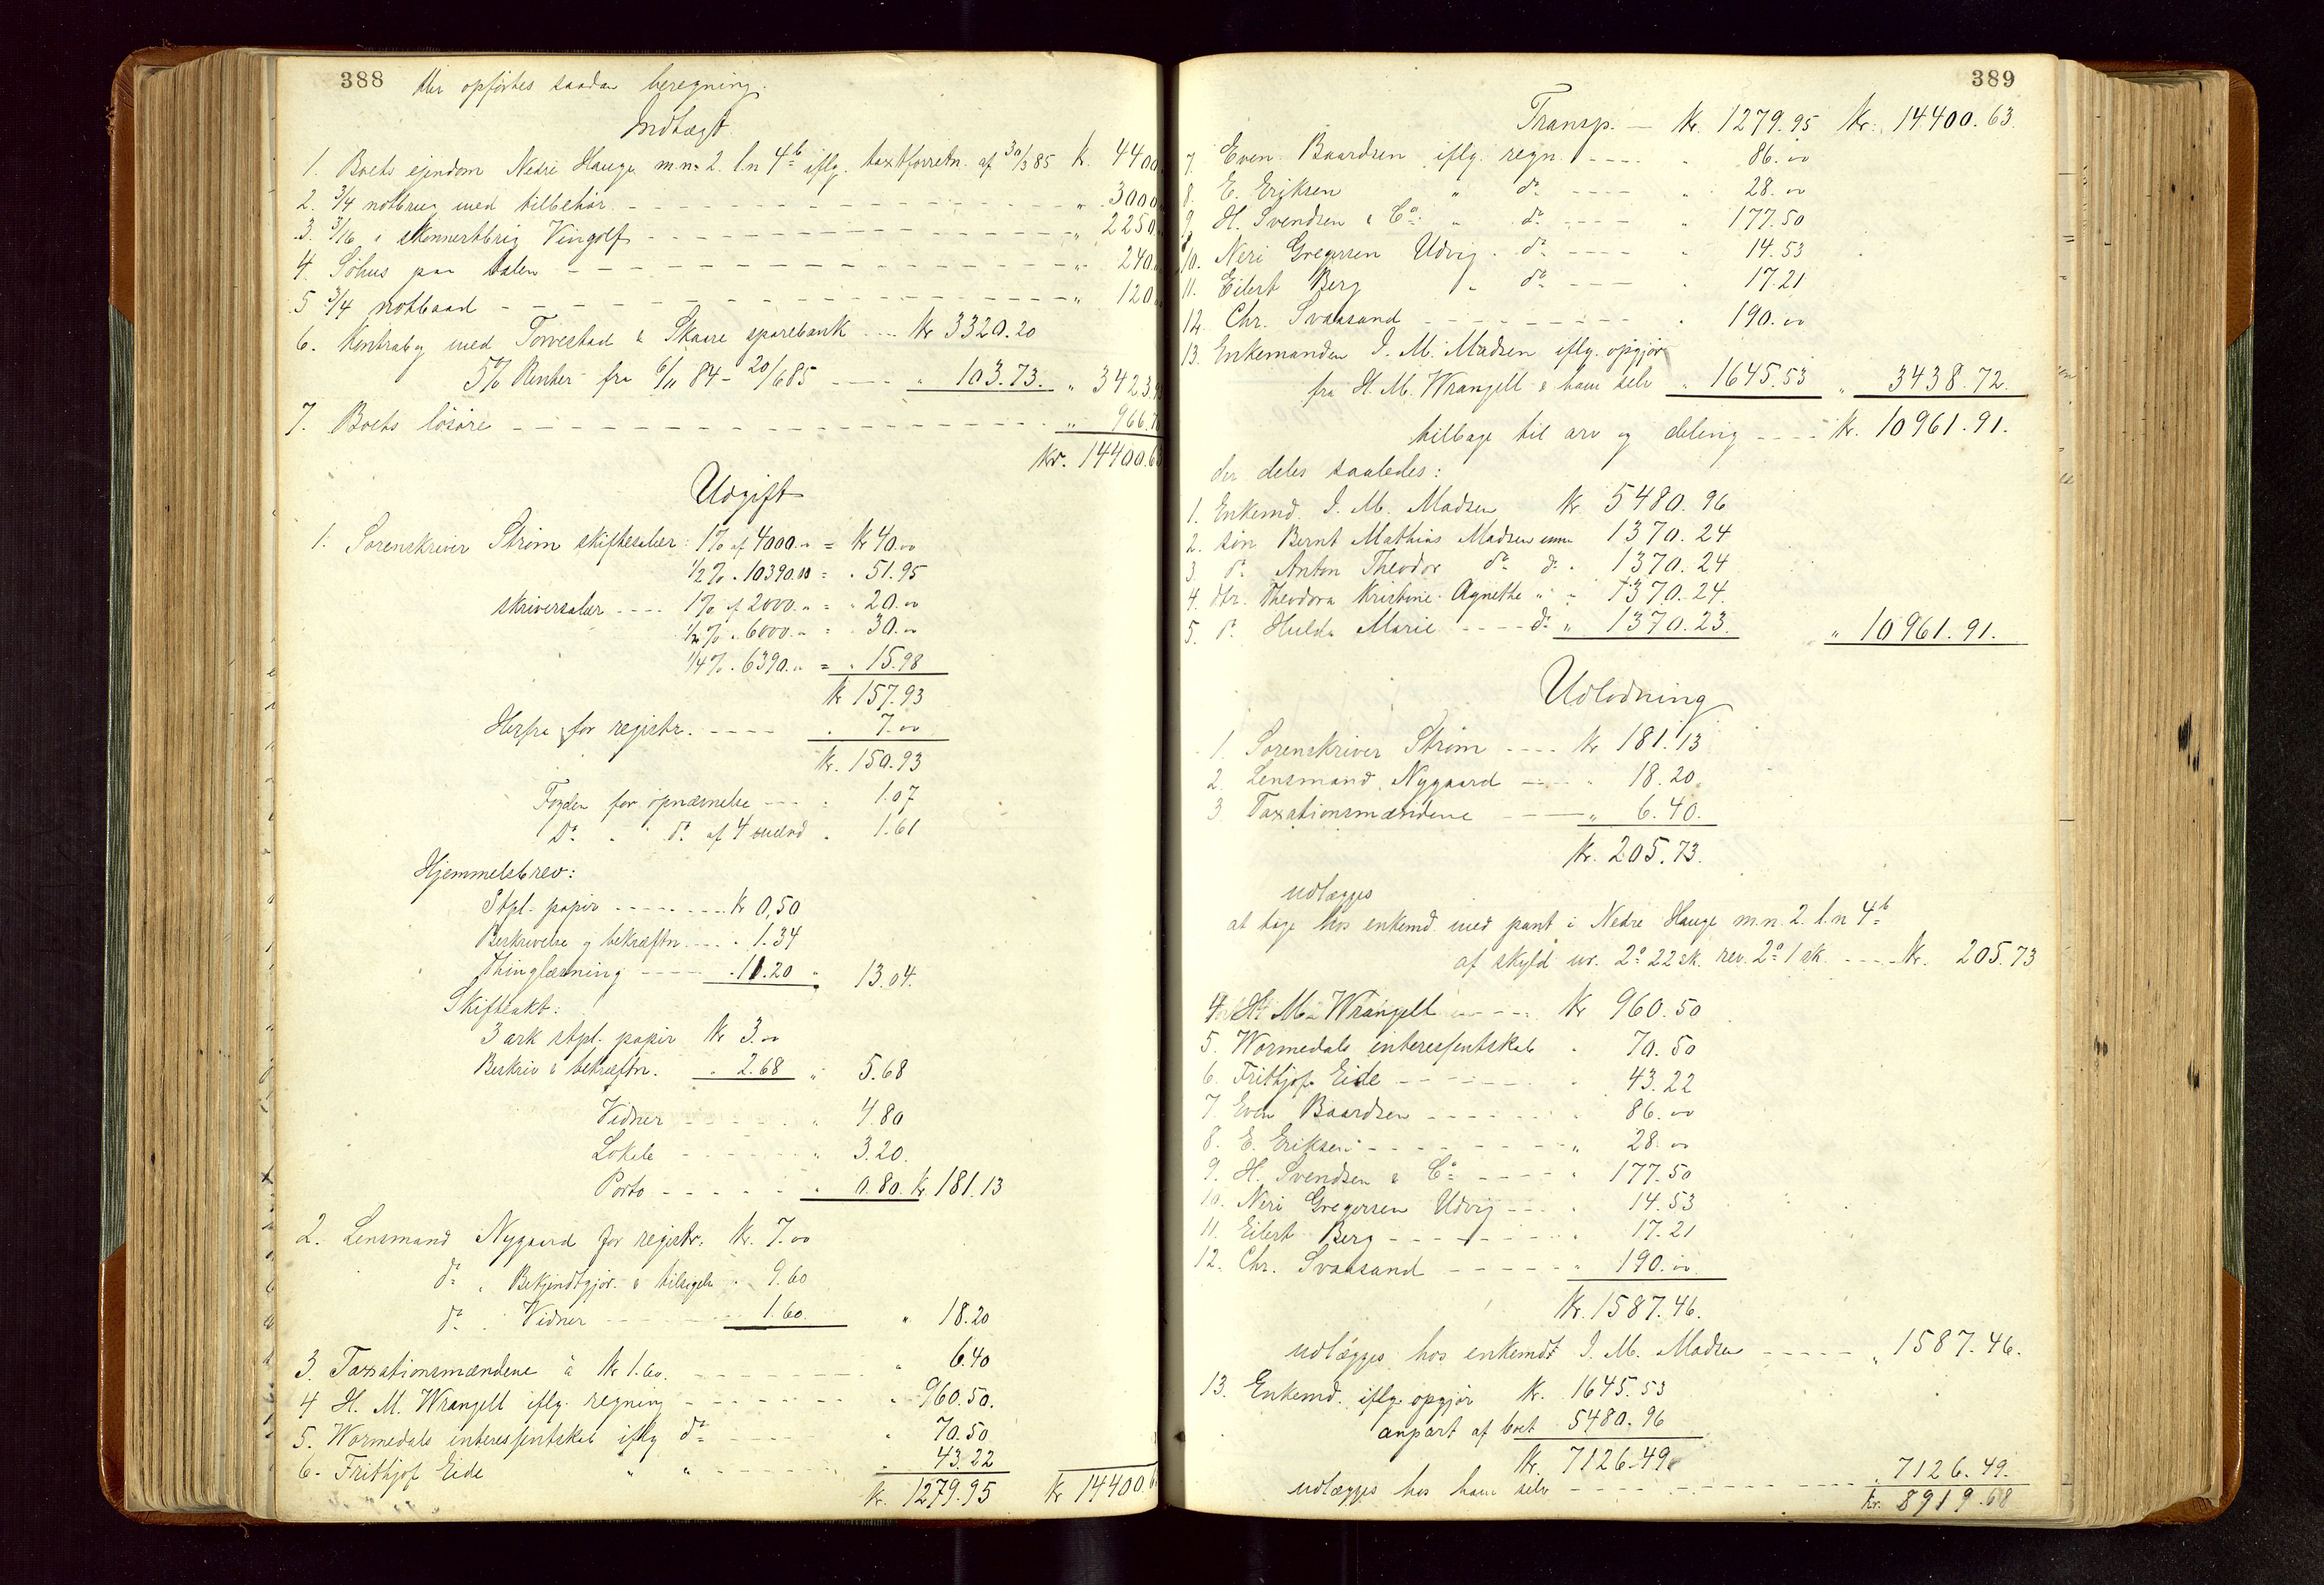 388
Her opførtes saadan beregning.
Indtægt
1. Boets eiendom Nedre Hauge m.n. 2. l.n 4b iflg. taxtforretn. af 30/3 85 K. 4400
2. 3/4 notbrug med tilbehør. - - - " 3000
3. 3/16 i skonnertbrig Vingolf - - - " 2250
4. Søhus paa - - - " 240
5 3/4 notbaad - - - " 120
6. Kontrabog med Torvestad & Skaare sparebank - - - Kr 3320.20
5% Renter fra 6/11 84 - 20/6 85 - - - " 103.73. " 3423.9
7. Boets løsøre - - - " 966.7
Kr. 14400.63
Udgift
1. Sorenskriver Strøm skiftesalær: 1% af 4000.00 = Kr 40.00
1/2% . 10390.00 = . 51.95
skriversalær - - - 1% af 2000.00 = " 20.00
1/2% . 6000.00 = . 30.00
1/4% . 6390.00 = . 15.98
Kr 157.93
Herfra for registr. - - - . 7.00
Kr. 150.93
Fogden for opnævnelse - - - . 1.07
Do . do af 4 . 1.61
Hjemmelsbrev:
Stpl. papir - - - Kr 0,50
Beskrivelse og bekræftn. - - - . 1.34
Thinglæsning - - - . 11.20 " 13.04.
Skifteakt:
3 ark stpl. papir Kr 3.00
Beskriv & bekræftn. . 2.68 " 5.68
Vidner - - - . 4.80
Lokale - - - " 3.20.
Porto - - - . 0.80. Kr 181.13
2. Lensmand Nygaard for registr. Kr. 7.00
do . Bekjendtgjør. & tilsigelse . 9.60
do . Vidner - - - 1.60. " 18.20
3. Taxationsmændene à Kr 1.60. - - - " 6.40
4 H. M. Wrangell iflg. regning - - - " 960.50.
5. Wormedals interessentskab iflg do - - - " 70.50
6. Frithjof Eide " " - - - . 43.22
Kr. 1279.95 Kr 14400.6
389
Transp. - Kr. 1279.95 Kr. 14400.63.
7. Even Baardsen iflg. regn. - - - . 86.00
8. E. Eriksen " do - - - " 28.00
9. H. Svendsen & Co. " do - - - " 177.50
10. Neri Gregersen Udvig . do - - - " 14.53
11. Eilert Berg " do - - - . 17.21
12. Chr. Svaasand - - - . 190.00
13. Enkemanden I. M. Madsen iflg. opgjør
fra H. M. Wrangell & ham selv " 1645.53 " 3438.72.
tilbage til arv og deling - - - Kr. 10961.91.
der deles saaledes:
1. Enkemd. I. M. Madsen Kr 5480.96
2. søn Bernt Mathias Madsen 1370.24
3. do Anton Theodor do do . 1370.24
4. dtr. Theodora Kristine Agnethe " " 1370.24.
5. do Hulda Marie - - - do " 1370.23. " 10961.91.
Udlodning
1. Sorenskriver Strøm - - - Kr 181.13
2. Lensmand Nygaard - - - " 18.20.
3 Taxationsmændene - - - " 6.40.
Kr. 205.73.
udlægges
at tage hos enkemd. med pant i Nedre Hauge m.n. 2. l.n 4b
af skyld ur. 2o 22 sk. rev. 2o 1 sk. - - - Kr. 205.73
4. H. M. Wrangell - - - Kr 960.50
5. Wormedals interessentskab . 70.50
6. Frithjof Eide - - - . 43.22
7. Even Baardsen - - - . 86.00
8. E. Eriksen - - - " 28.00
9. H. Svendsen & Co - - - . 177.50
10. Neri Gregersen Udvig - - - . 14.53
11. Eilert Berg - - - . 17.21
12. Chr. Svaasand - - - " 190.00.
Kr. 1587.46.
udlægges hos enkemd I. M. Madsen - - - " 1587.46.
13. Enkemd. iflg. opgjør Kr. 1645.53
anpart af boet 5480.96
Kr. 7126.49
udlægges hos ham selv - - - . 7126.49.
Kr. 8919.68